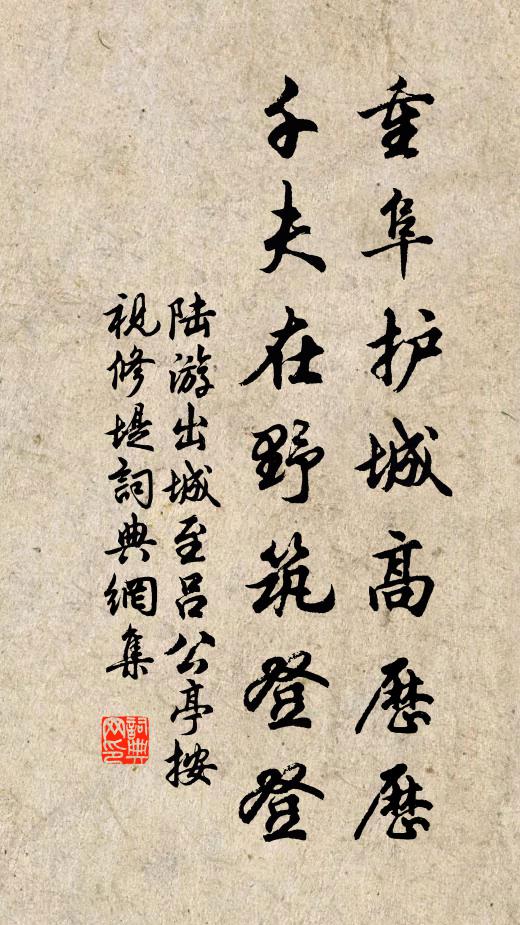 重阜护城高历历
千夫在野筑登登
陆游出城至吕公亭按
视修堤詞典網集
詞典
网印